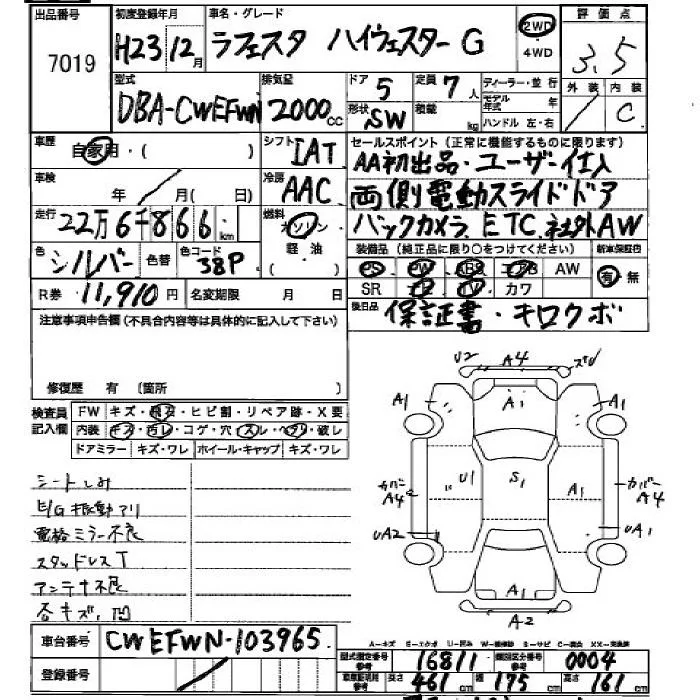 出品番号 7019
初度登録年月 H23 12月
車名・グレード ラフェスタ ハイウェスターG
2WD ・ 4WD
評価点 3.5
外装 / 内装 C
型式 DBA-CWEFWN
排気量 2000cc
ドア 5 定員 7人
形状 SW 積載 kg
ディーラー・並行
モデル年式 年
ハンドル 左・右
車歴 自家用・( )
シフト IAT
セールスポイント(正常に機能するものに限ります)
AA初出品・ユーザー仕入
車検 年 / 月( 日)
冷房 AAC
両側電動スライドドア
走行 22万6千866 km
燃料 ガソリン 軽・油( )
バックカメラ ETC 社外AW
色 シルバー 色替 色コード 38P
装備品(純正品に限り○をつけてください) 新車保証書
PS PW ABS エアB AW 有・無
SR ナビ TV カワ
R券 11,910円 名変期限 月 日
後日品 保証書・キロクボ
注意事項申告欄(不具合内容等は具体的に記入して下さい)
修復歴 有 (箇所 )
検査員記入欄 FW キズ・飛石・ヒビ割・リペア跡・X要
内装 キズ・汚レ・コゲ・穴・スレ・ヘタリ・破レ
ドアミラー キズ・ワレ ホイール・キャップ キズ・ワレ
シートしみ
E/G振動アリ
電格ミラー不良
スタッドレスT
アンテナ不良
各キズ、凹
U2 A4
A1 A1 A1
カバーA4 U1 S1 A1 カバーA4
UA2 UA1
A1
A-2
車台番号 CWEFWN-103965
A-キズ E-エクボ U-凹み W-補修跡 S-サビ C-腐食 XX-交換済
登録番号 /
型式指定番号 参考 16811 類別区分番号 参考 0004
車輌証明り 参考 長さ 461cm 幅 175cm 高さ 161cm